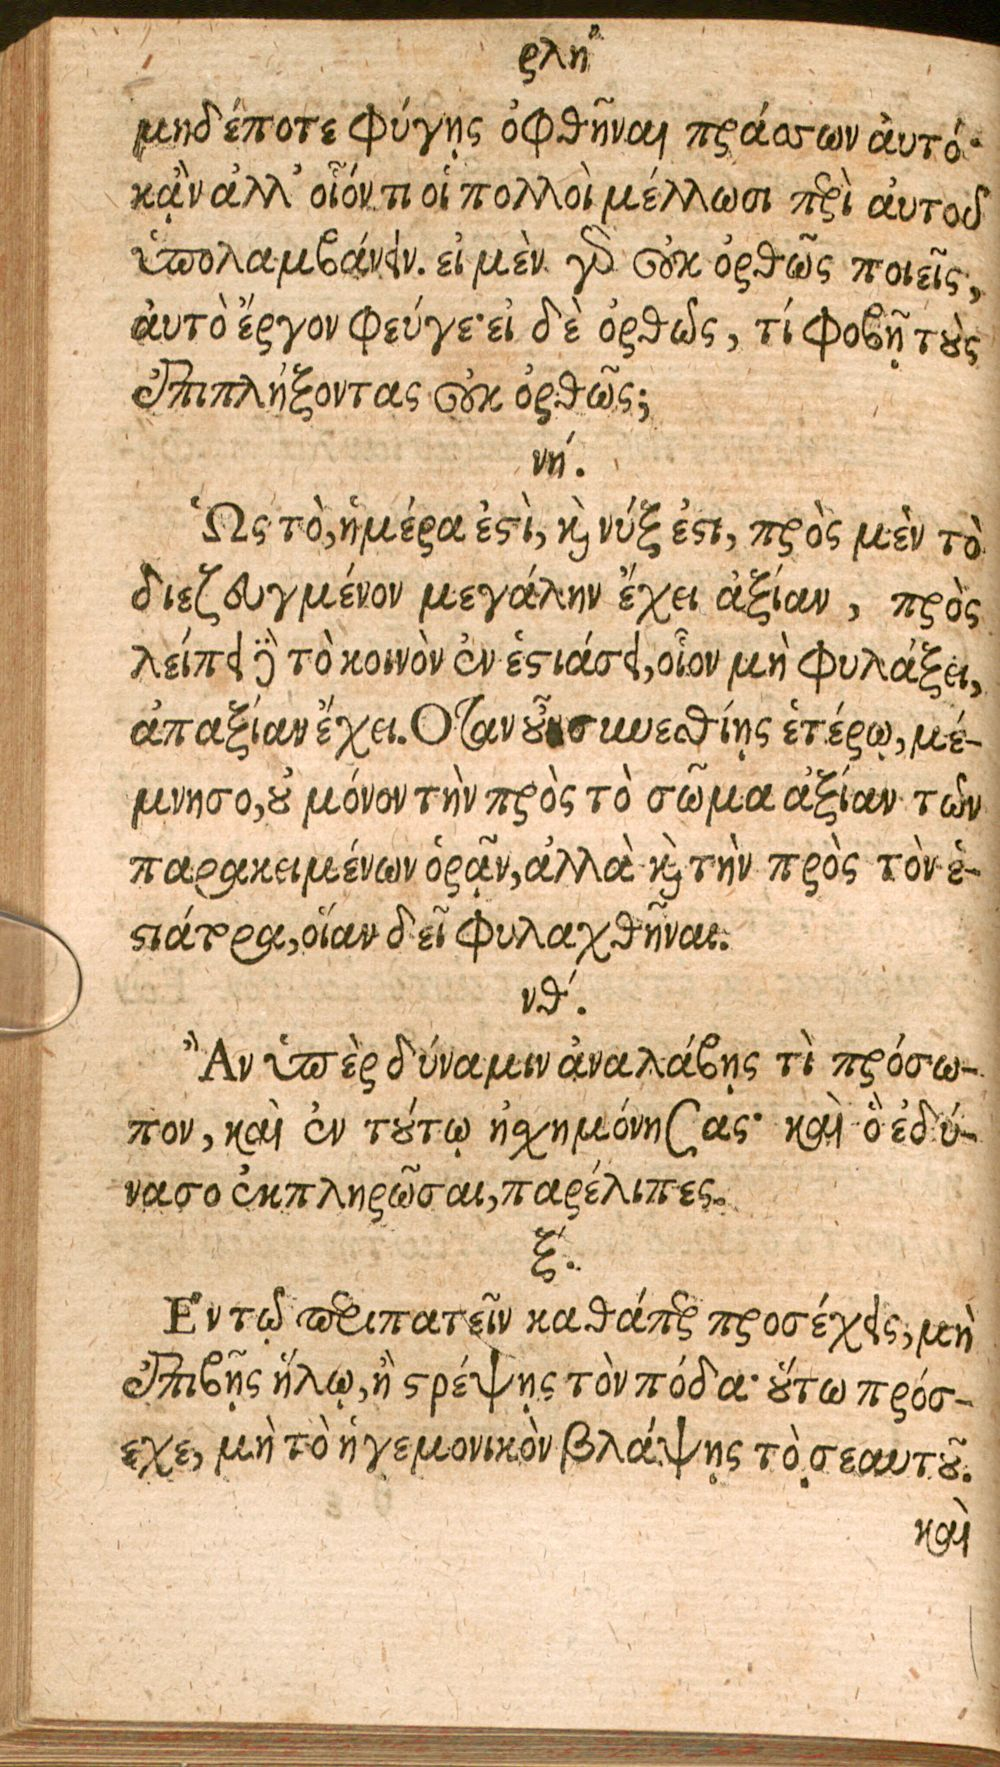 ρλη
μηδέποτε φύγῃς ὀφθῆναι πράσσων ἀυτό·
κᾂν ἀλλ' οἷόν τι οἱ πολλοὶ μέλλωσι περὶ ἀυτοῦ
ὑπολαμβάνειν. εἰ μὲν γὰρ οὐκ ὀρθῶς ποιεῖς,
ἀυτὸ ἔργον φεύγε· εἰ δὲ ὀρθῶς, τί φοβῇ τοὺς
ἐπιπλήξοντας οὐκ ὀρθῶς;
νή.
Ὡς τὸ, ἡμέρα ἐστὶ, καὶ νύξ ἐστι, πρὸς μὲν τὸ
διεζευγμένον μεγάλην ἔχει ἀξίαν, πρὸς
λείπει δὲ τὸ κοινὸν ἐν ἑστιάσει, οἷον μὴ φυλάξει,
ἀπαξίαν ἔχει. Οταν οὖν συνεσθίῃς ἑτέρῳ, μέ-
μνησο, οὐ μόνον τὴν πρὸς τὸ σῶμα ἀξίαν τῶν
παρακειμένων ὁρᾷν, ἀλλὰ καὶ τὴν πρὸς τὸν ἑ-
στιάτορα, οἵαν δεῖ φυλαχθῆναι.
νθ.
Ἂν ὑπὲρ δύναμιν ἀναλάβῃς τὶ πρόσω-
πον, καὶ ἐν τούτῳ ἠσχημόνησας· καὶ ὃ ἐδύ-
νασο ἐκπληρῶσαι, παρέλιπες.
ξ.
Εν τῷ περιπατεῖν καθάπερ προσέχεις, μὴ
ἐπιβῇς ἥλῳ, ἢ στρέψῃς τὸν πόδα· οὕτω πρόσ-
εχε, μὴ τὸ ἡγεμονικὸν βλάψῃς τὸ σεαυτοῦ.
καὶ